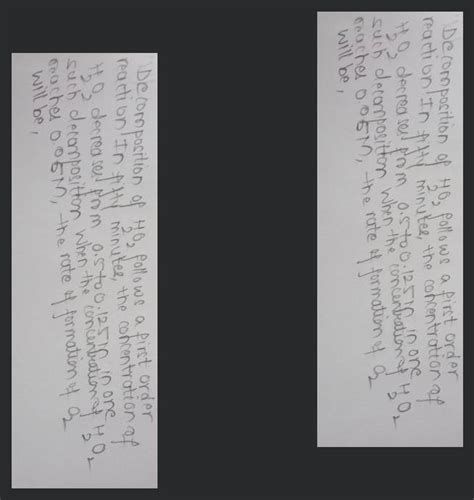 Decomposition of H2O2 follows a first order
reaction. In fifty minutes, the concentration of
H2O2 decreases from 0.5 to 0.125 M in one
such decomposition when the concentration of H2O2
reaches 0.05 M, the rate of formation of O2
will be,
Decomposition of H2O2 follows a first order
reaction. In fifty minutes, the concentration of
H2O2 decreases from 0.5 to 0.125 M in one
such decomposition when the concentration of H2O2
reaches 0.05 M, the rate of formation of O2
will be,